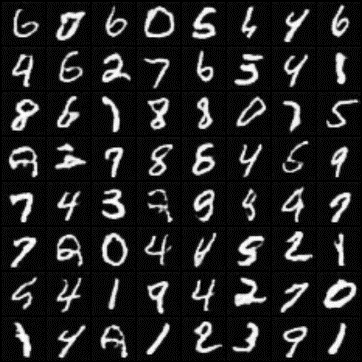 6 0 6 0 5 6 4 6
4 6 2 7 6 3 4 1
8 6 1 8 8 0 7 5
2 7 8 6 4 5 9
7 4 3 9 8 9 9
7 2 0 4 4 9 2 1
5 4 1 9 4 2 7 0
1 4 1 2 3 9 1